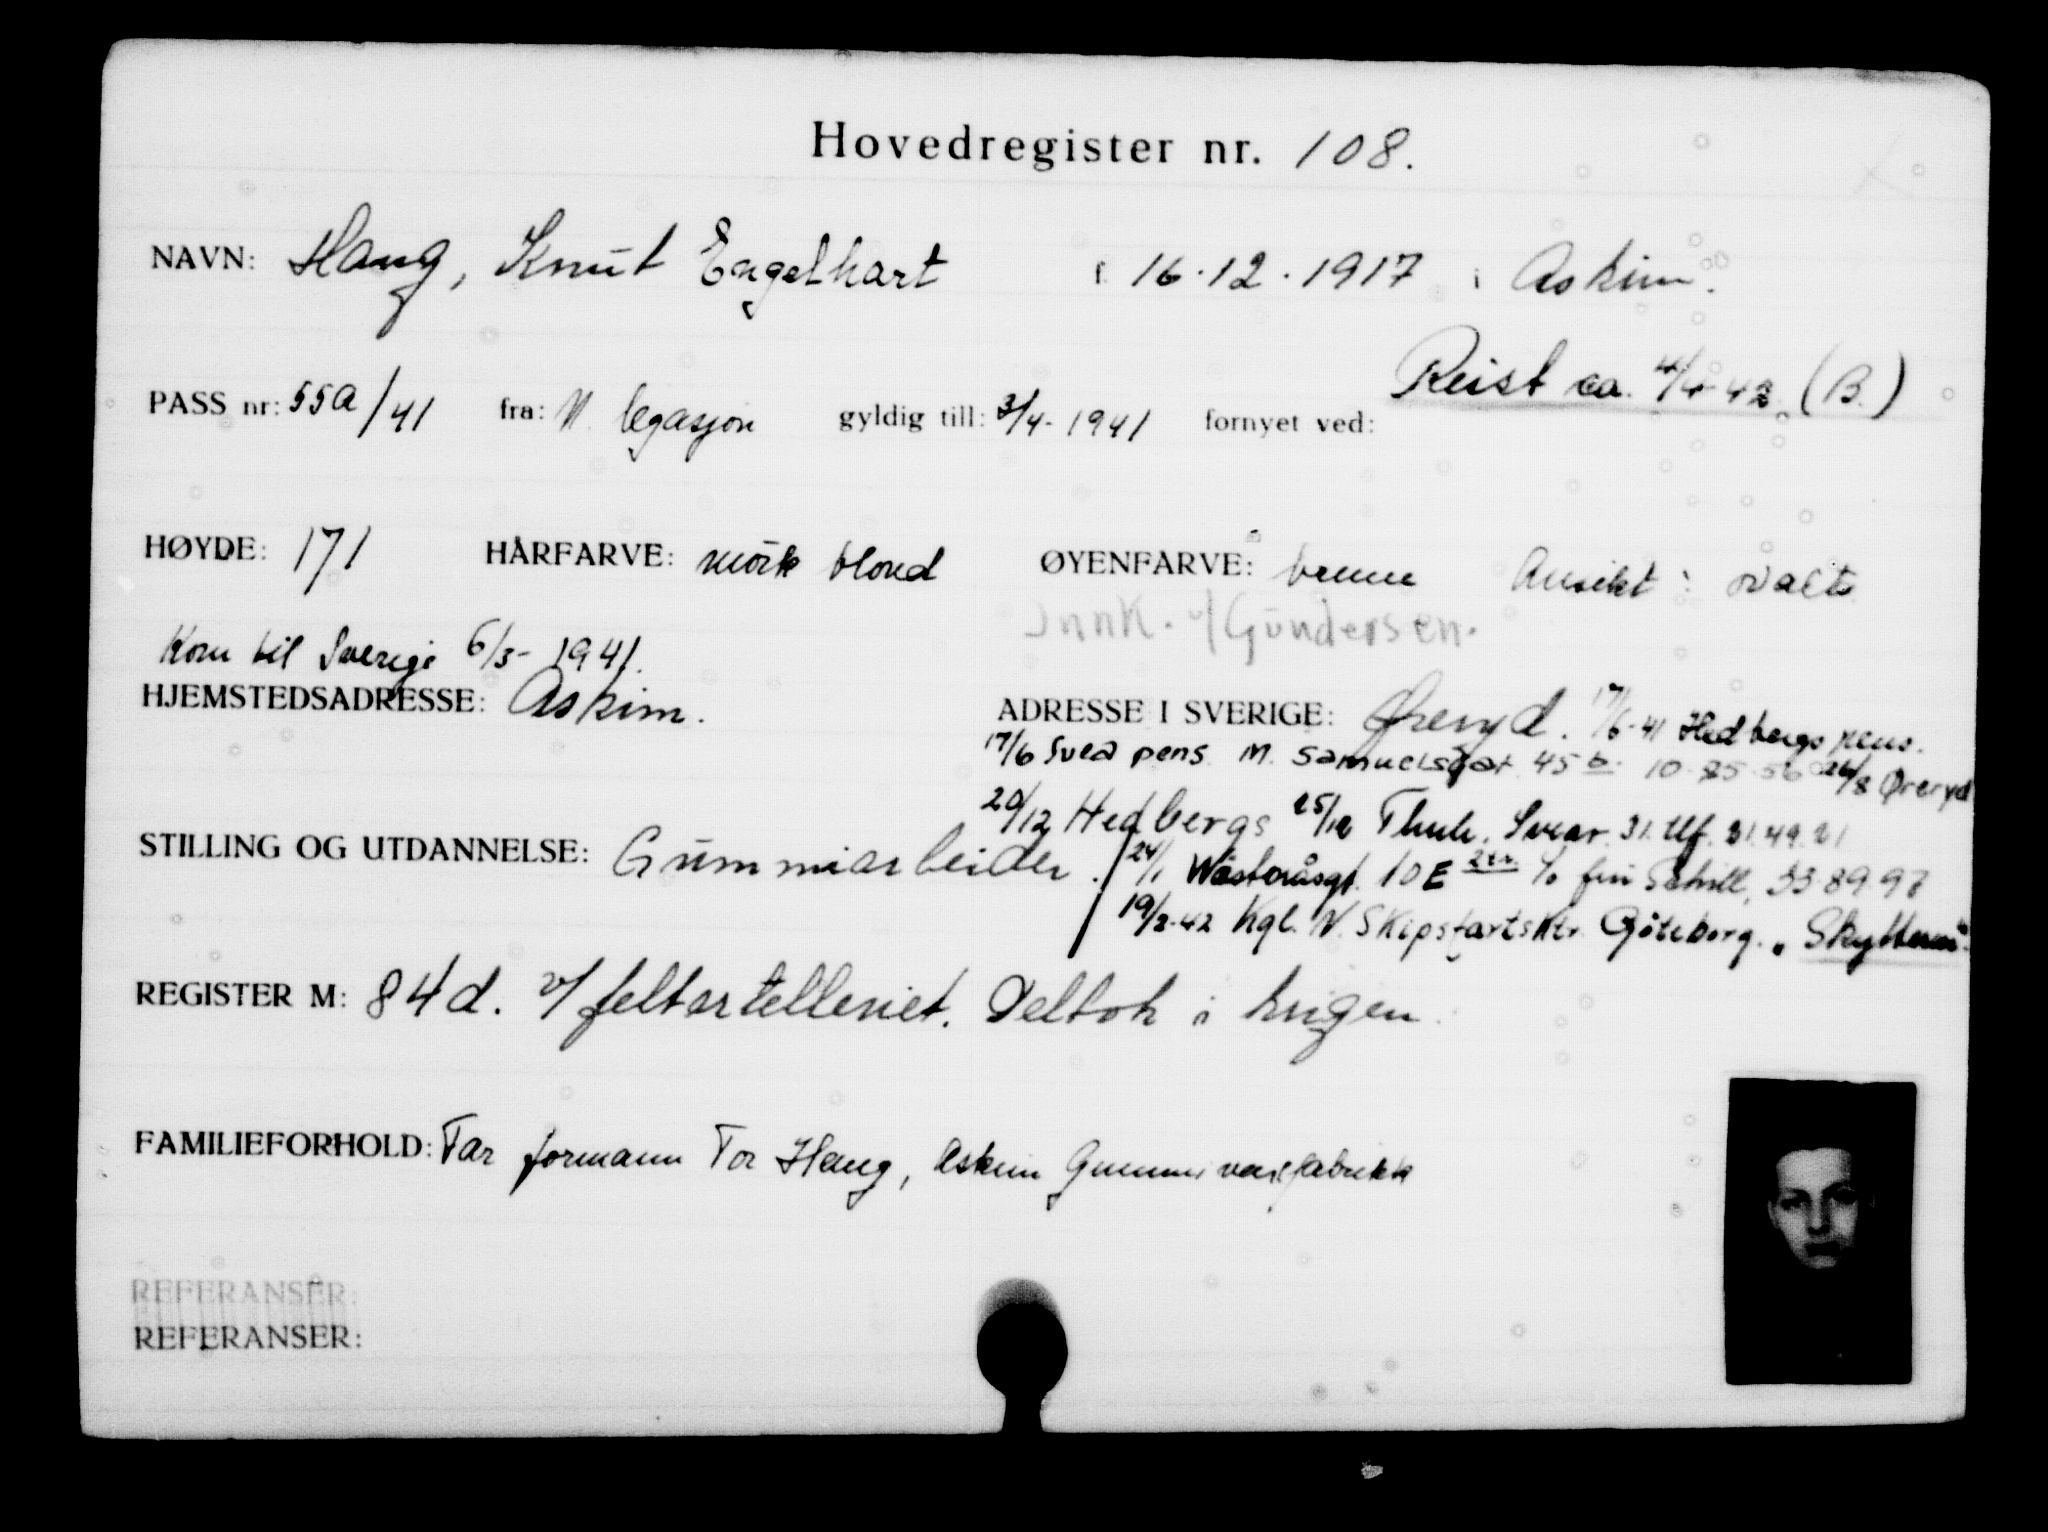 Hovedregister nr. 108.
NAVN: Haug, Knut Engelhart f. 16.12.1917 i Askim.
Reist ca. 4/4-42. (B.)
PASS nr: 55a/41 fra: N. legasjon gyldig till: 3/4-1941 fornyet ved:
HØYDE: 171 HÅRFARVE: mörk blond ØYENFARVE: brune Ansikt: ovalt
Innk. v/ Gundersen.
Kom til Sverige 6/3-1941.
HJEMSTEDSADRESSE: Askim.
ADRESSE I SVERIGE: Øreryd. 17/6-41 Hedbergs pens.
17/6 Svea pens. M. Samuelsgat 45 b. 10-85-56 26/8 Øreryd
20/12 Hedbergs 25/12 Thule. Svear. 31. tlf. 31.49.21
STILLING OG UTDANNELSE: Gummiarbeider.
24/1 Wästeråsgt. 10 E 2tr. c/o frn 33.89.97
19/2-42 Kgl. N. Skipsfartsktr. Göteborg. "Skytteren".
REGISTER M: 84d. v/ feltartelleriet. Deltok i krigen.
FAMILIEFORHOLD: Far formann Tor Haug, Askim Gummivarefabrikk
REFERANSER:
REFERANSER: